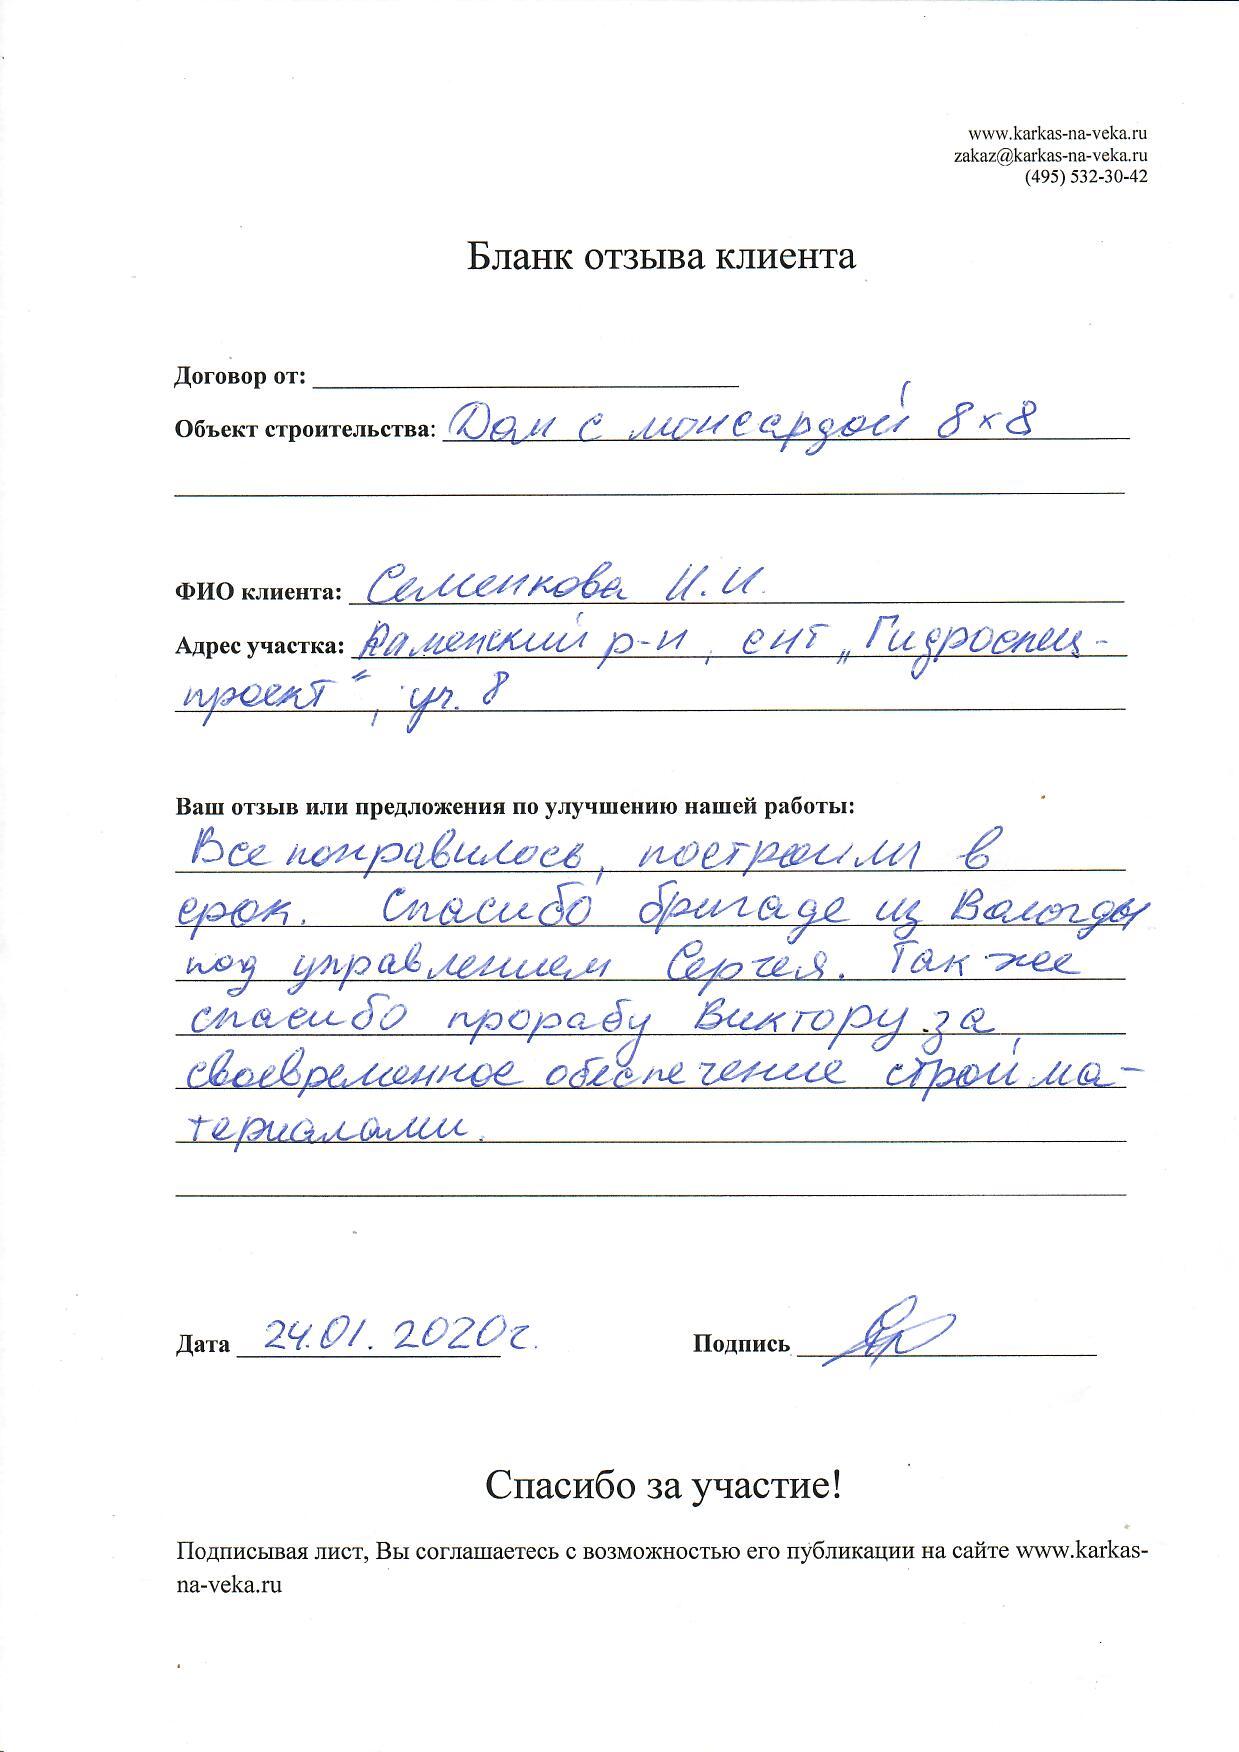 www.karkas-na-veka.ru
zakaz@karkas-na-veka.ru
(495) 532-30-42
Бланк отзыва клиента
Договор от:
Объект строительства: Дом с монсардой 8х8
ФИО клиента: Семенкова И.И.
Адрес участка: Раменский р-н, снт „Гидроспец-
проект“, уч. 8
Ваш отзыв или предложения по улучшению нашей работы:
Все понравилось, построили в
срок. Спасибо бригаде из Вологды
под управлением Сергея. Так же
спасибо прорабу Виктору за
своевременное обеспечение стройма-
териалами.
Дата 24.01.2020г. Подпись
Спасибо за участие!
Подписывая лист, Вы соглашаетесь с возможностью его публикации на сайте www.karkas-
na-veka.ru